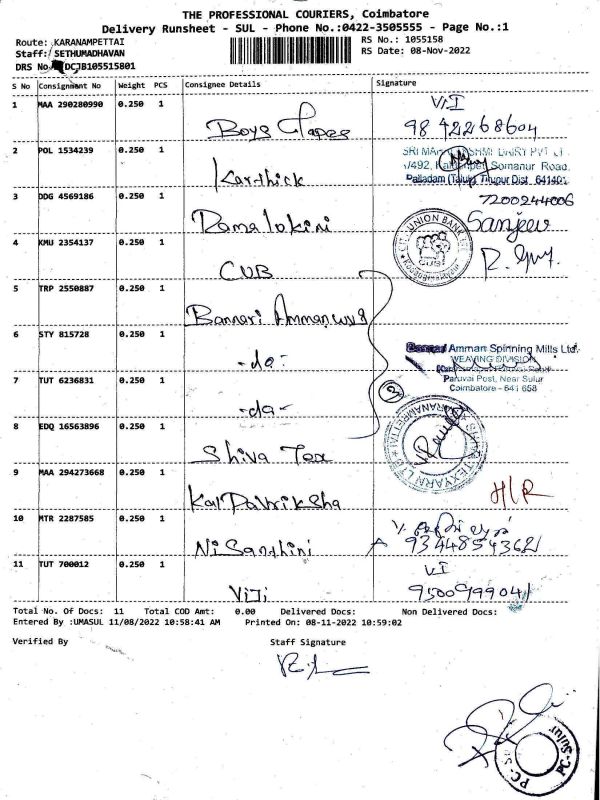 THE PROFESSIONAL COURIERS, Coimbatore
Delivery Runsheet - SUL - Phone No.:0422-3505555 - Page No.:1
Route: KARANAMPETTAI RS No.: 1055158
Staff: SETHUMADHAVAN RS Date: 08-Nov-2022
DRS No. DCJB105515801
S No Consignment No Weight PCS Consignee Details Signature
1 MAA 290280990 0.250 1
Boys 9842268604
2 POL 1534239 0.250 1
Karthick
Palladam (Taluk) Tirupur Dist. 641401
3 DDG 4569186 0.250 1 7200244006
Sanjeev
4 KMU 2354137 0.250 1 CITY UNION BANK
CUB
5 TRP 2550887 0.250 1
Bannari Amman
6 STY 815728 0.250 1
-do- Amman Spinning Mills Ltd.
WEAVING DIVISION
7 TUT 6236831 0.250 1 Paruvai Post, Near Sulur
Coimbatore - 641 658
-do- 3
8 EDQ 16563896 0.250 1
Shiva Tex
9 MAA 294273668 0.250 1
Kalpavriksha H/R
10 MTR 2287585 0.250 1
Nisanthini 9344854362
11 TUT 700012 0.250 1
Viji 9500999041
Total No. Of Docs: 11 Total COD Amt: 0.00 Delivered Docs: Non Delivered Docs:
Entered By :UMASUL 11/08/2022 10:58:41 AM Printed On: 08-11-2022 10:59:02
Verified By Staff Signature
PC-Sulur